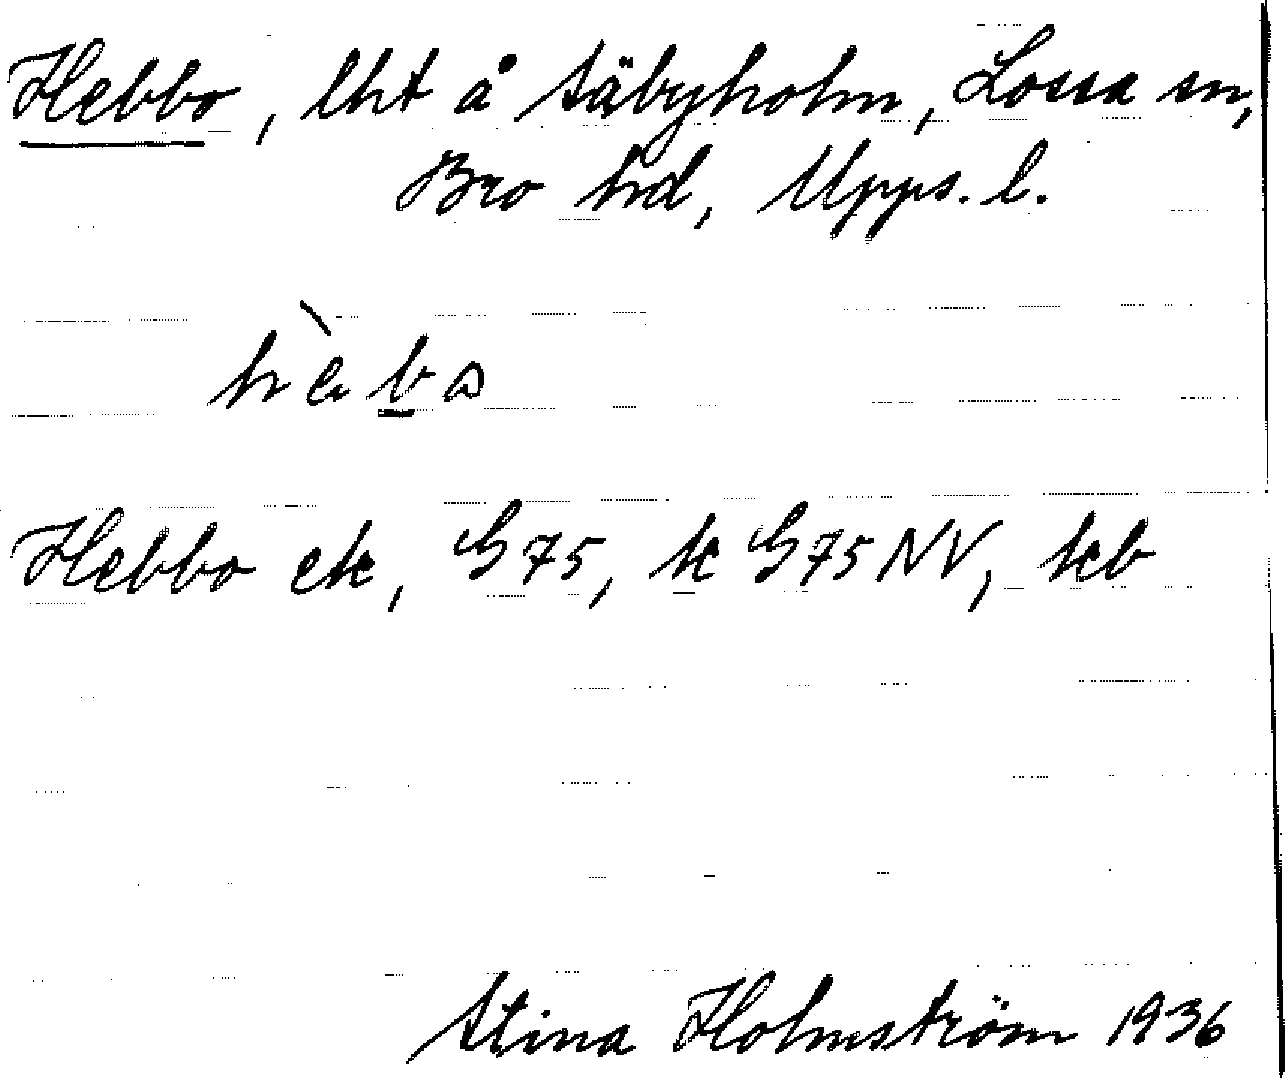 Hebbo, lht å Säbyholm, Lossa sn,
Bro hd, Upps. l.
hèbo
Hebbo ek, G75, k G75NV, kb
Stina Holmström 1936